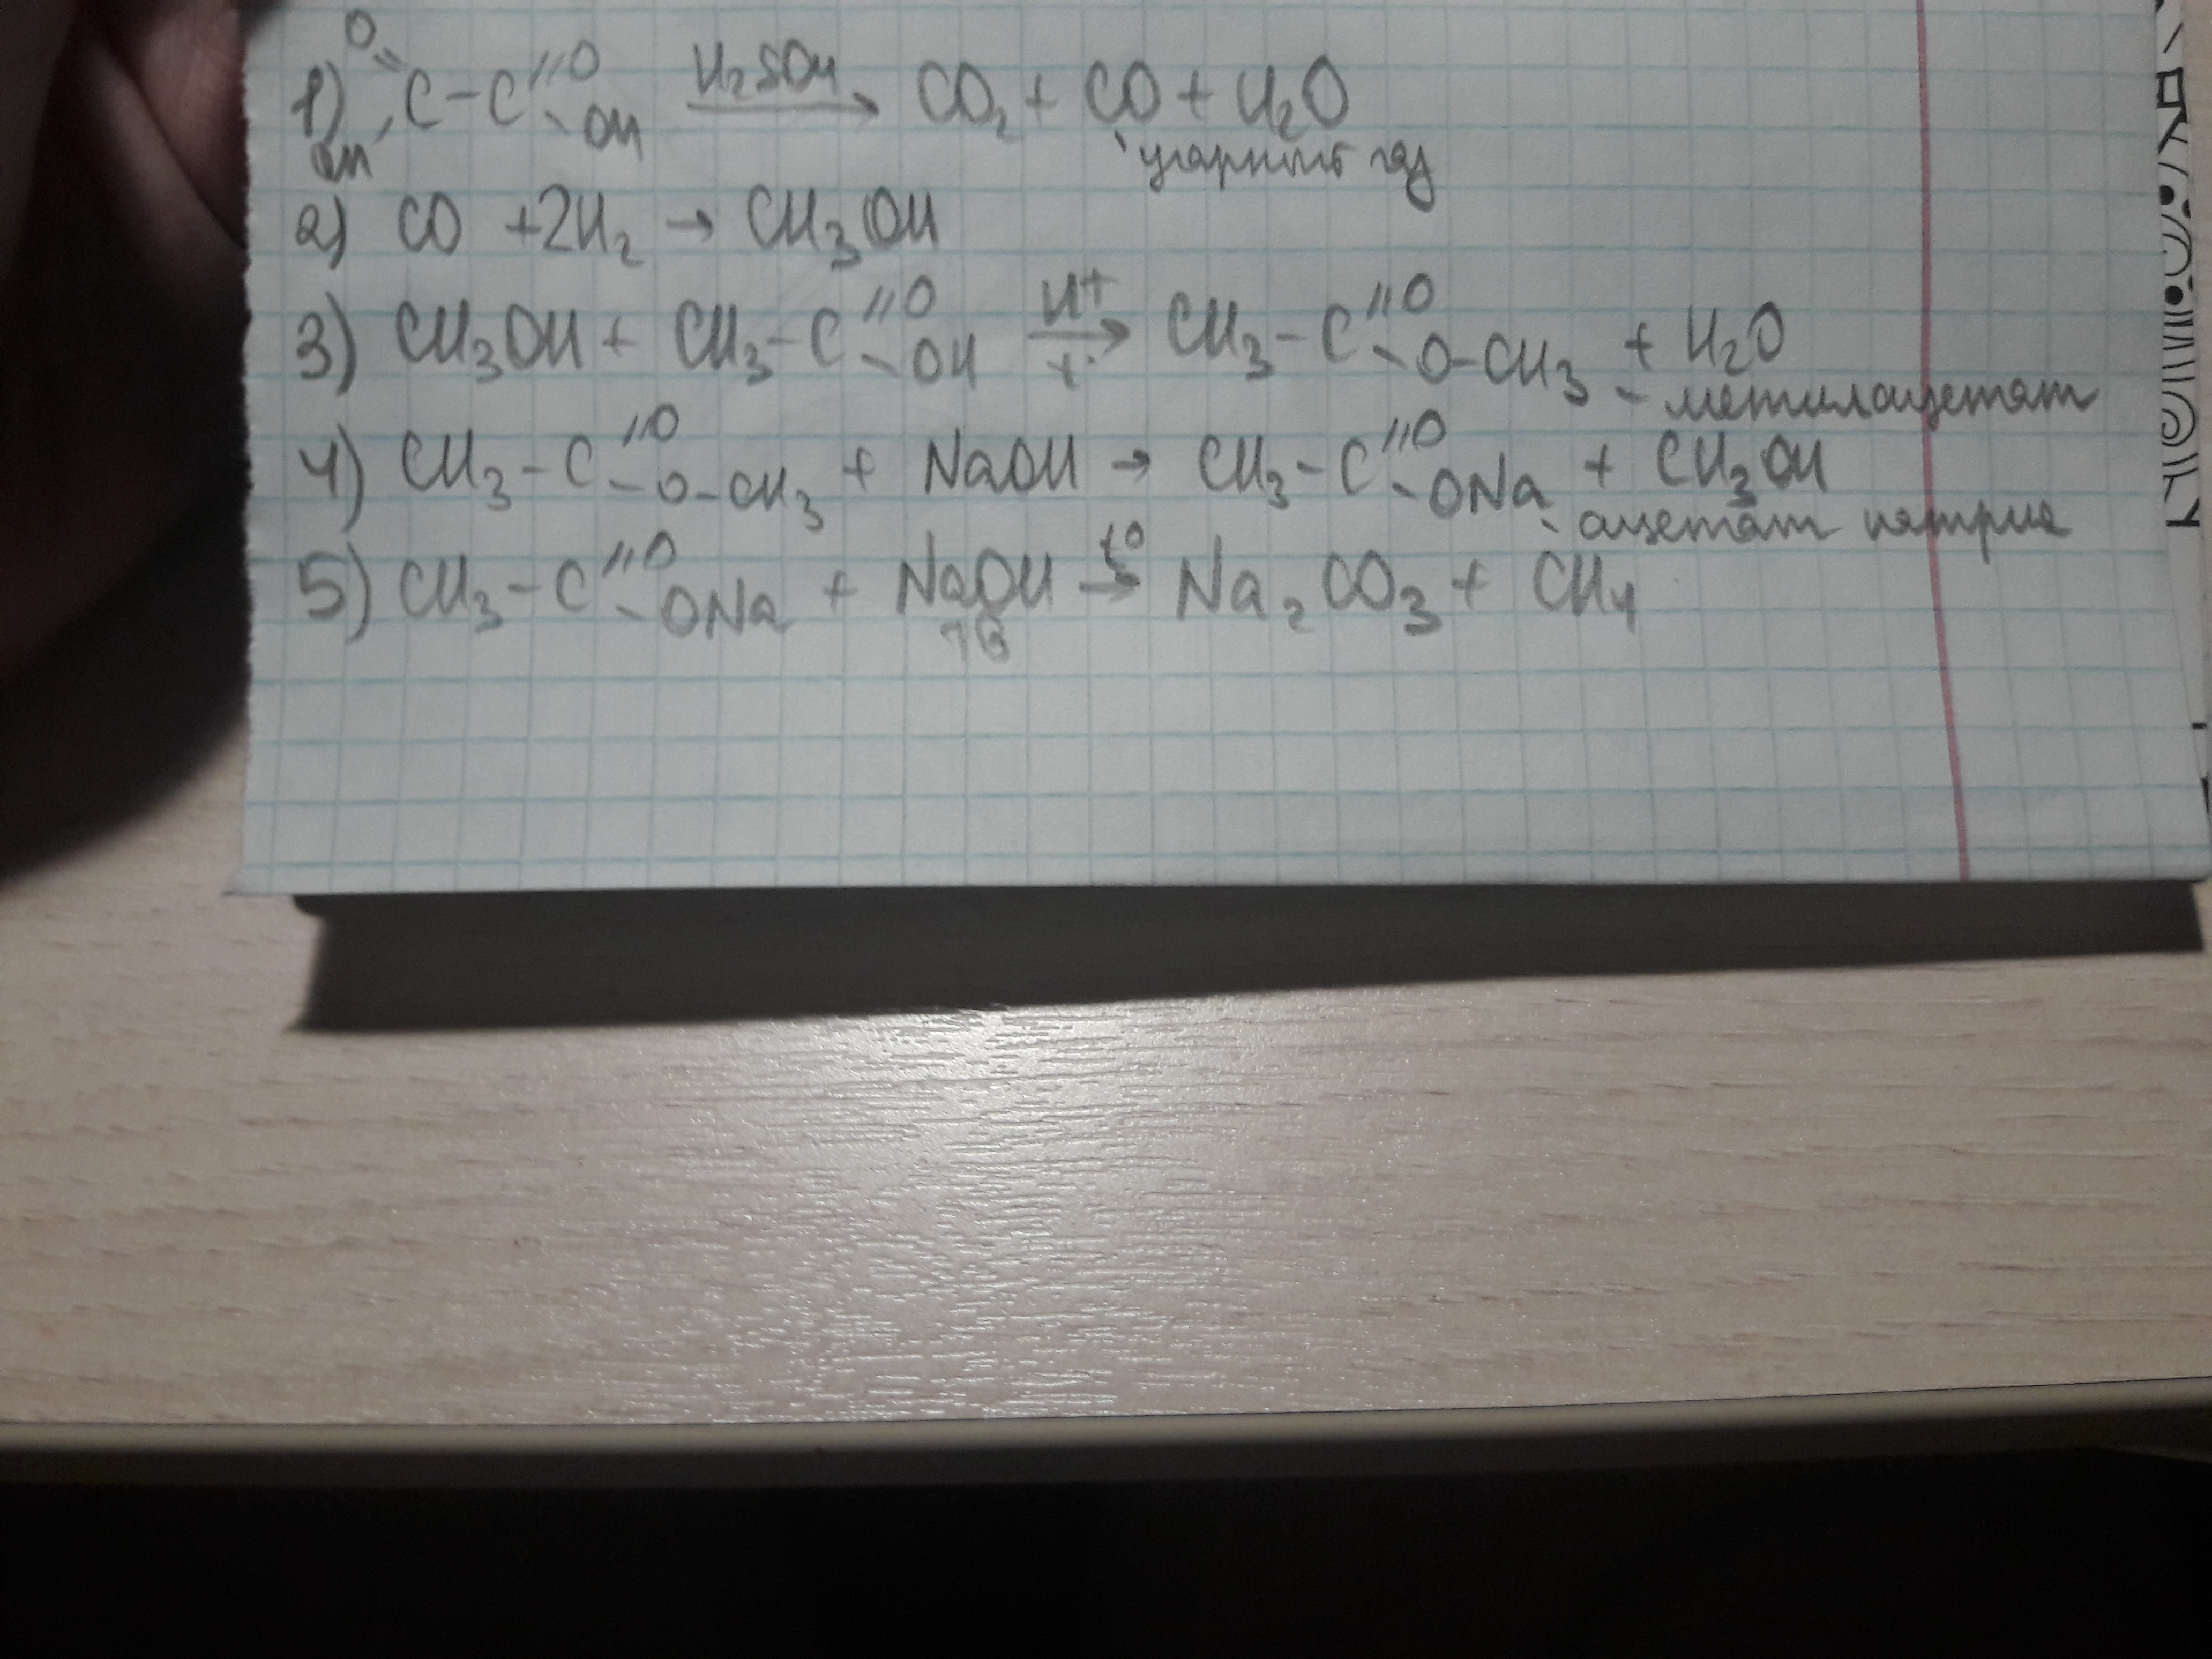 1) O=C(OH)-C(=O)-OH H₂SO₄→ CO₂ + CO + H₂O
угарный газ
2) CO + 2H₂ → CH₃OH
3) CH₃OH + CH₃-C(=O)-OH H⁺→ CH₃-C(=O)-O-CH₃ + H₂O
- метилацетат
4) CH₃-C(=O)-O-CH₃ + NaOH → CH₃-C(=O)-ONa + CH₃OH
ацетат натрия
5) CH₃-C(=O)-ONa + NaOH t°→ Na₂CO₃ + CH₄
тв